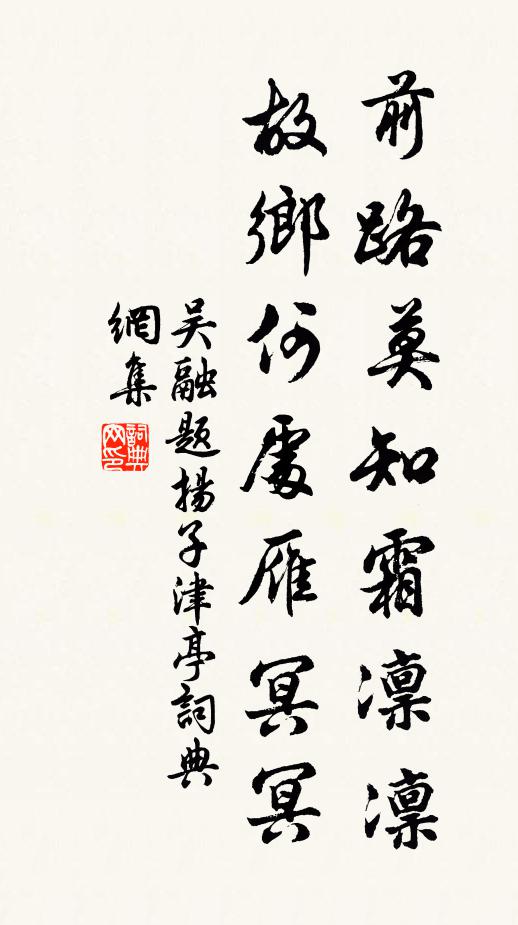 前路莫知霜凛凛
故鄉何處雁冥冥
吳融題揚子津亭詞典
網集
詞典
网印